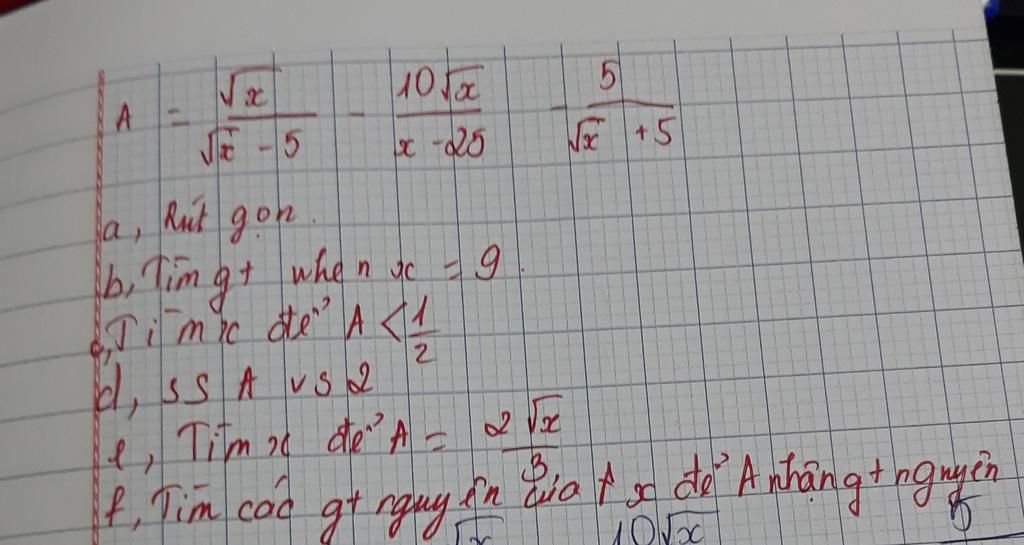 A = √x / (√x - 5) - 10√x / (x - 25) - 5 / (√x + 5)
a, Rút gọn.
b, Tìm gt when x = 9.
c, Tìm x để A < 1/2
d, SS A vs 2
e, Tìm x để A = 2√x / 3
f, Tìm các gt nguyên của x để A nhận gt nguyên
√x 10√x 5